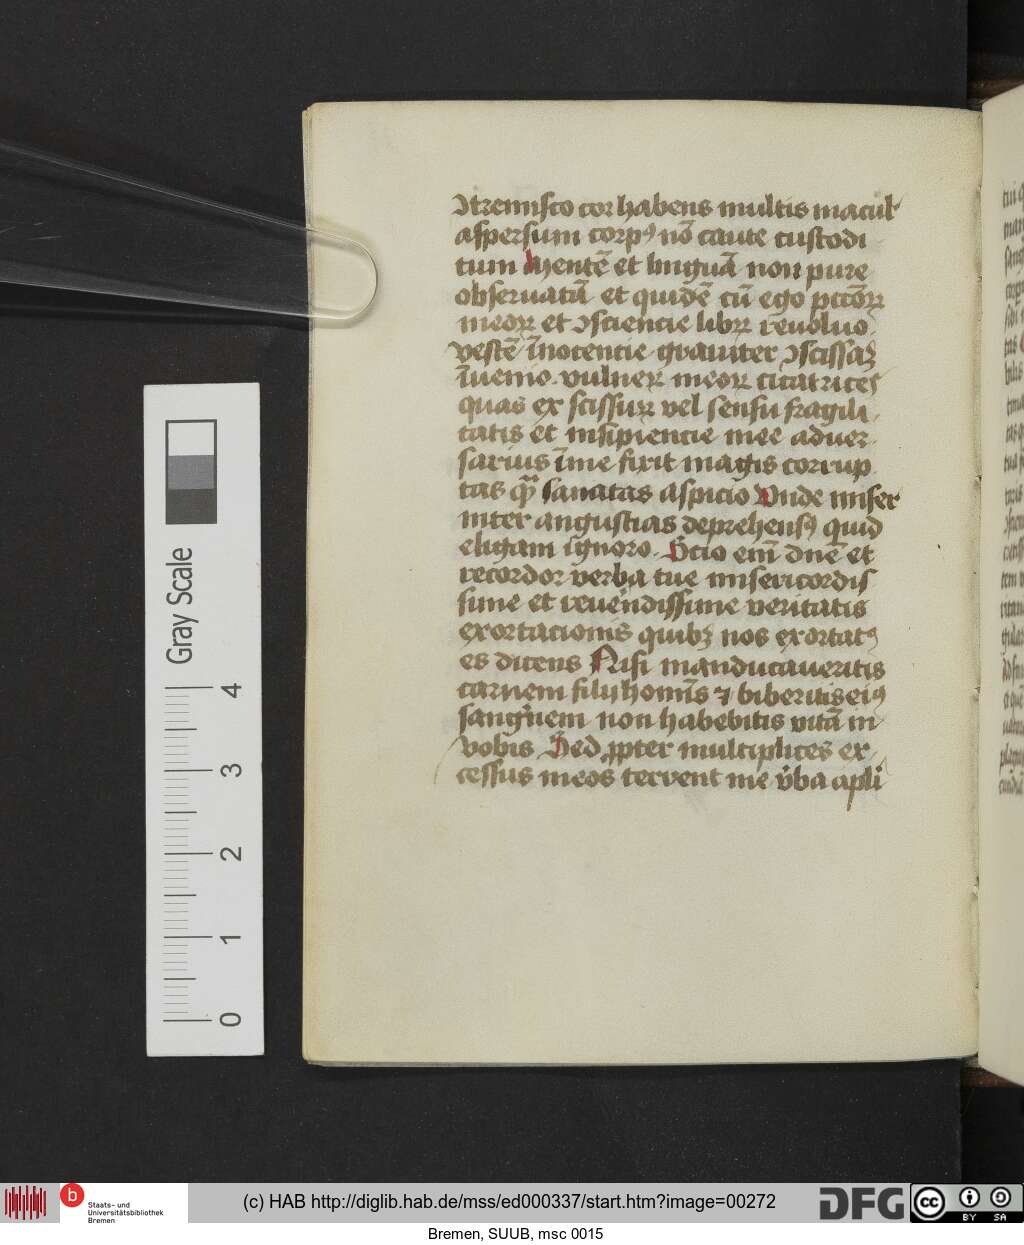 Ↄtremisco cor habens multis macul'
aspersum corpꝰ nō caute custodi
tum Mentē et linguā non pure
obseruatā et quidē cū ego pctōꝝ
meoꝝ et ↄsciencie libꝝ reuoluo
vestē īnocentie grauiter ↄscissaꝫ
īuenio. vulneꝝ meoꝝ cicatrices
quas ex scissuꝝ vel sensu fragili
tatis et insipiencie mee aduer
sarius ī me fixit magis corrup
tas qȝ sanatas aspicio Vnde miser
inter angustias deprehensꝰ quid
eligam ignoro. Scio eni dne et
recordor verba tue misericordis
sime et reuendissime veritatis
exortacionis quibꝫ nos exortatꝰ
es dicens Nisi manducaueritis
carnem filij hominis ⁊ biberitis eiꝰ
sanguinem non habebitis vitā in
vobis Sed ꝓpter multiplices ex
cessus meos terrent me v̄ba apli
Gray Scale
4
3
2
1
0
b
Staats- und
Universitätsbibliothek
Bremen
(c) HAB http://diglib.hab.de/mss/ed000337/start.htm?image=00272
DFG
cc
BY
SA
Bremen, SUUB, msc 0015